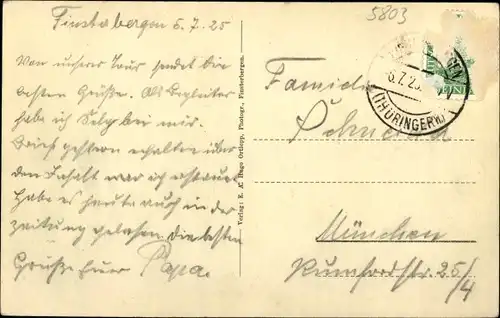 Finsterbergen 5.7.25
5803
Von unserer Tour sendet die
besten Grüße. Als Begleiter
habe ich Selz bei mir.
Brief gestern erhalten über
den Inhalt war ich erstaunt
habe es heute auch in der
Zeitung gelesen. Die besten
Grüße Euer Papa.
Verlag: E. A. Hugo Ortlepp, Photogr., Finsterbergen.
6.7.25
(THÜRINGERW.)
Familie
München
Rumfordstr. 25/4